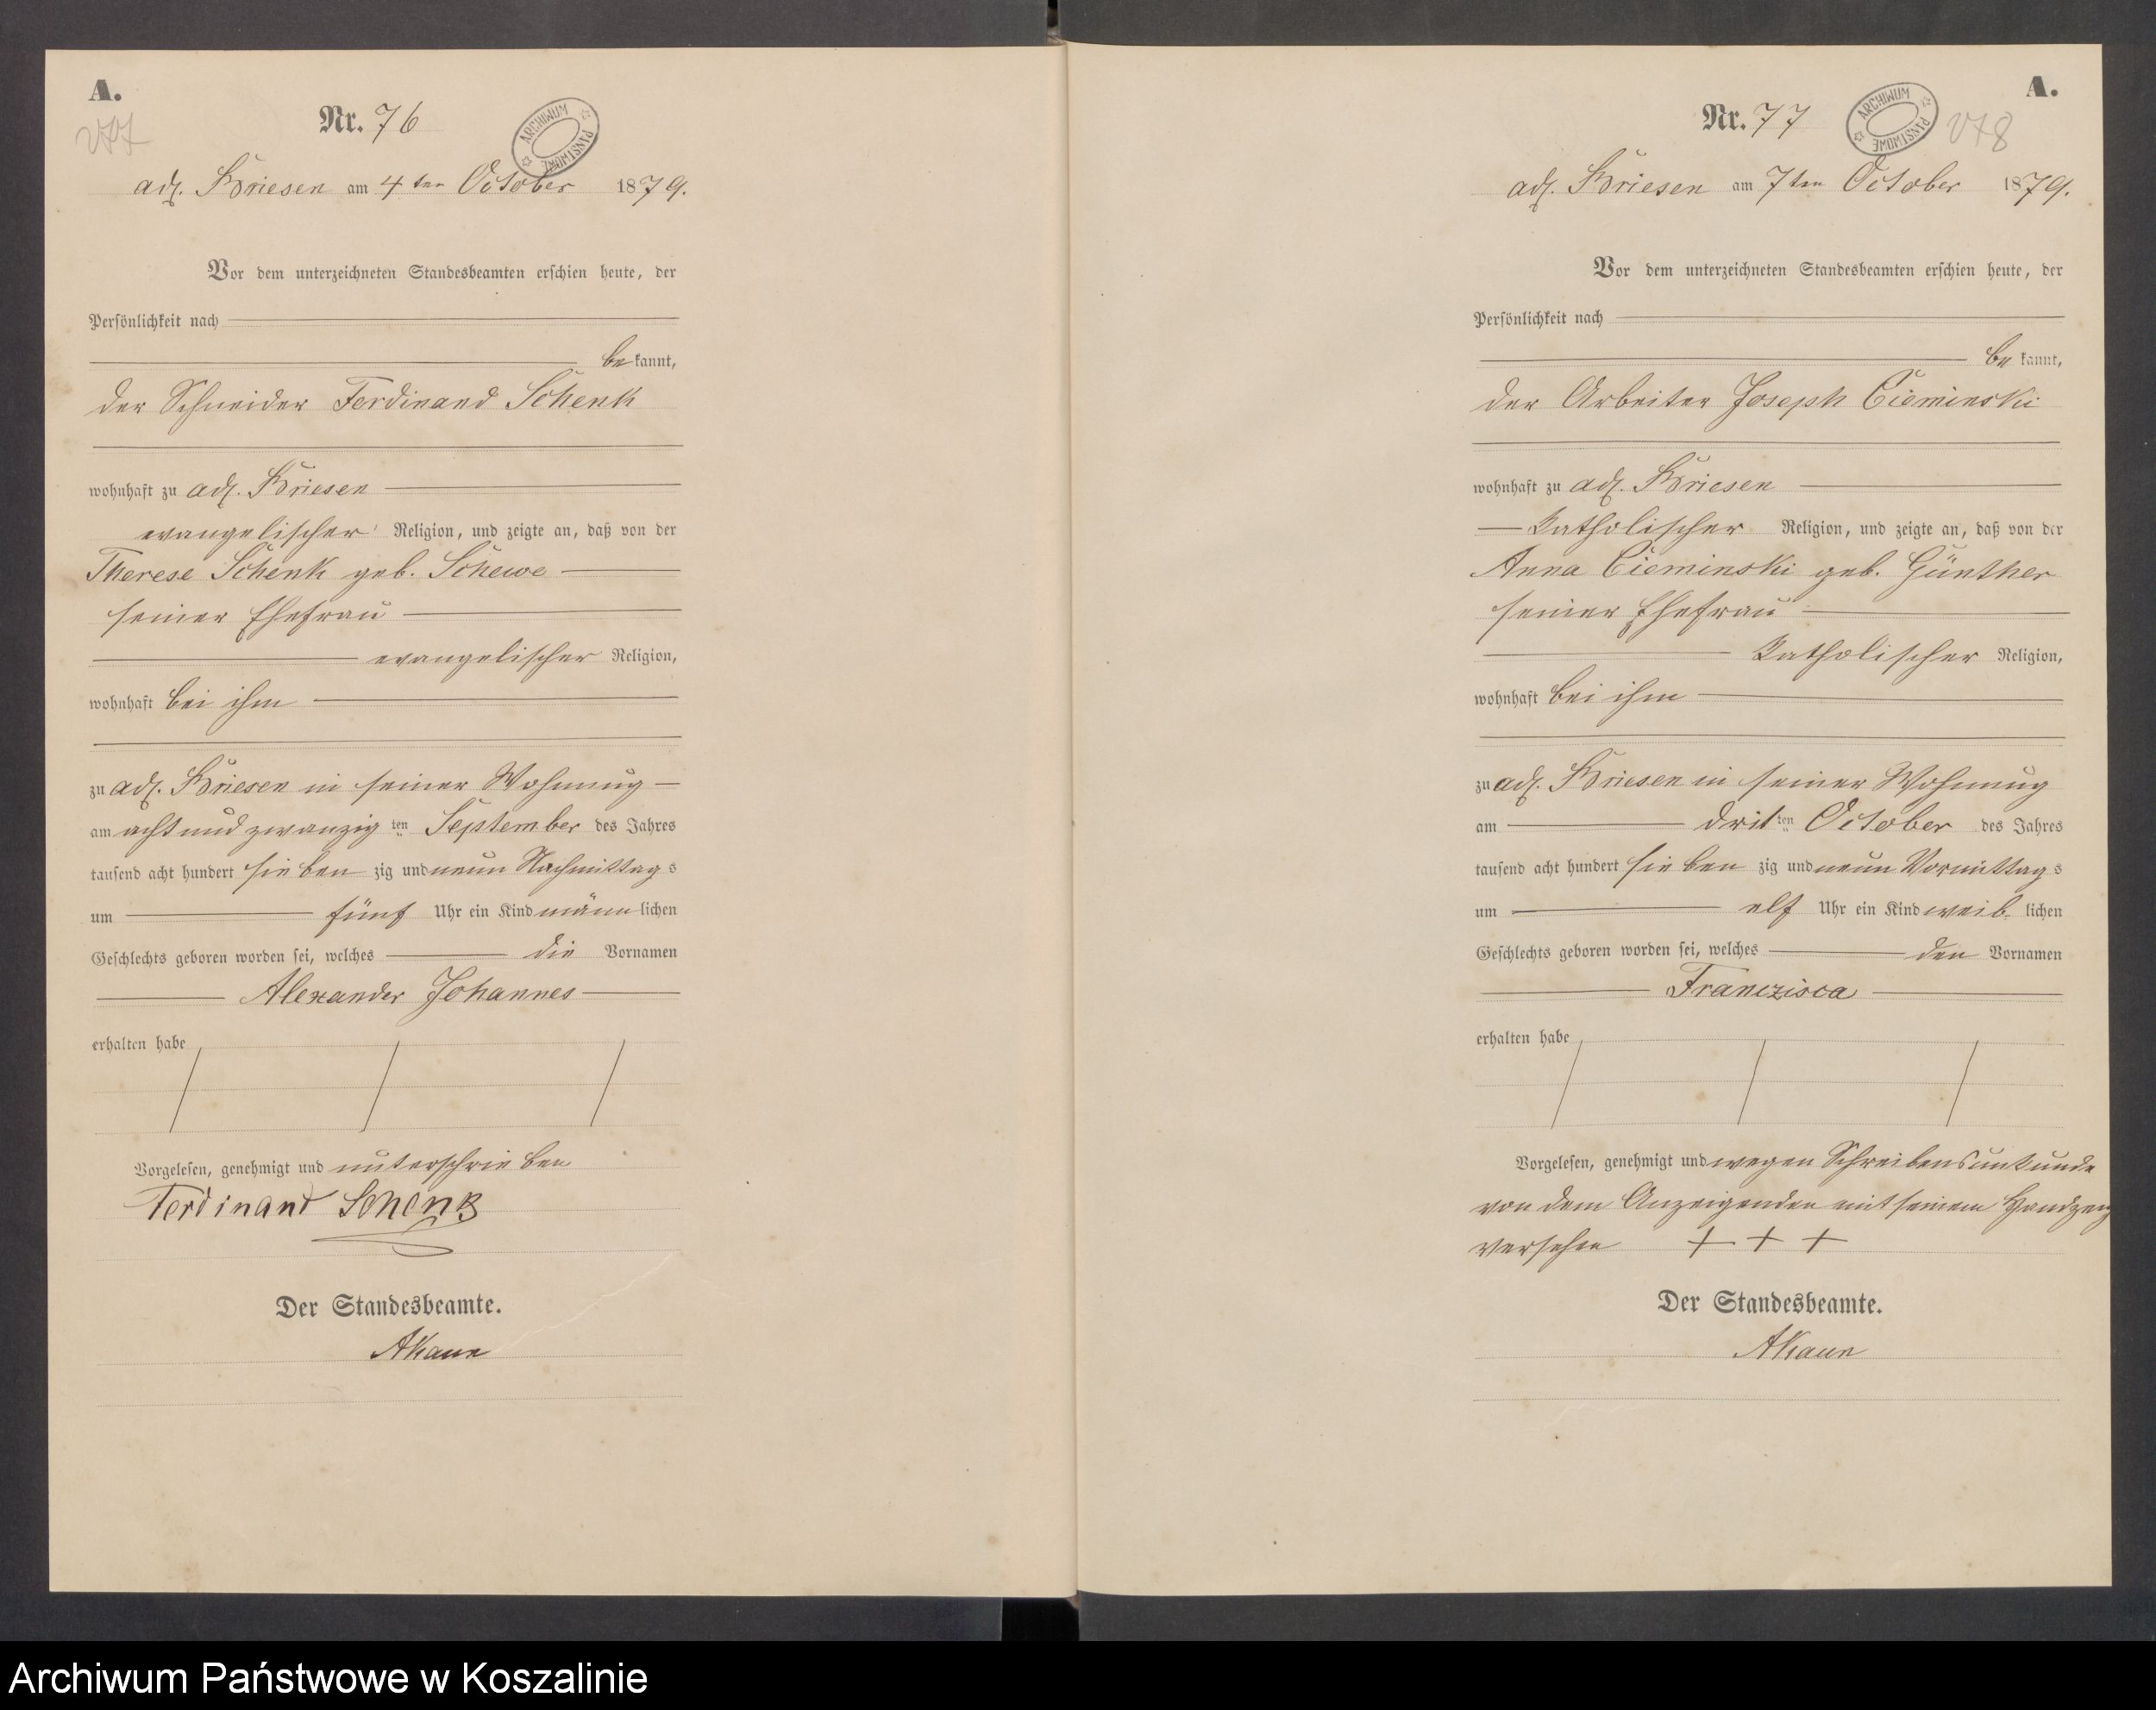 A.
Nr. 76
ARCHIWUM PAŃSTWOWE
adl. Briesen am 4ten October 1879.
Vor dem unterzeichneten Standesbeamten erschien heute, der
Persönlichkeit nach
bekannt,
der Schneider Ferdinand Schenk
wohnhaft zu adl. Briesen
evangelischer Religion, und zeigte an, daß von der
Therese Schenk geb. Schewe
seiner Ehefrau
evangelischer Religion,
wohnhaft bei ihm
zu adl. Briesen in seiner Wohnung
am acht und zwanzigten September des Jahres
tausend acht hundert siebenzig und neun Nachmittags
um fünf Uhr ein Kind männlichen
Geschlechts geboren worden sei, welches die Vornamen
Alexander Johannes
erhalten habe
Vorgelesen, genehmigt und unterschrieben
Ferdinand Schenk
Der Standesbeamte.
A.
Nr. 77
ARCHIWUM PAŃSTWOWE
178
adl. Briesen am 7ten October 1879.
Vor dem unterzeichneten Standesbeamten erschien heute, der
Persönlichkeit nach
bekannt,
der Arbeiter Joseph Cieminski
wohnhaft zu adl. Briesen
Katholischer Religion, und zeigte an, daß von der
Anna Cieminski geb. Günther
seiner Ehefrau
Katholischer Religion,
wohnhaft bei ihm
zu adl. Briesen in seiner Wohnung
am dritten October des Jahres
tausend acht hundert siebenzig und neun Vormittags
um elf Uhr ein Kind weiblichen
Geschlechts geboren worden sei, welches den Vornamen
Franczisca
erhalten habe
Vorgelesen, genehmigt und wegen Schreibensunkunde
von dem Anzeigenden mit seinem
versehen + + +
Der Standesbeamte.
Archiwum Państwowe w Koszalinie